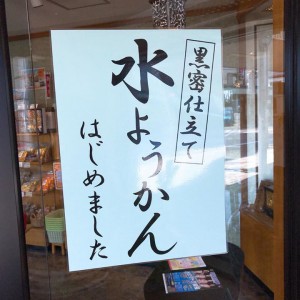 黒密仕立て
水ようかん
はじめました